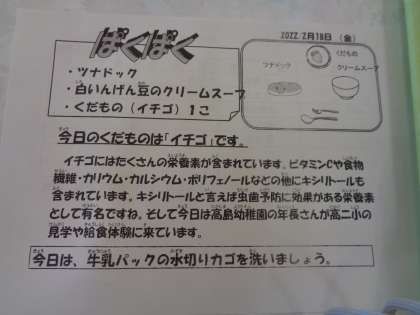 ぱくぱく
2022/2月18日（金）
・ツナドック
・白いんげん豆のクリームスープ
・くだもの（イチゴ）1こ
くだもの
ツナドック
クリームスープ
今日のくだものは「イチゴ」です。
イチゴにはたくさんの栄養素が含まれています。ビタミンCや食物
繊維・カリウム・カルシウム・ポリフェノールなどの他にキシリトールも
含まれています。キシリトールと言えば虫歯予防に効果がある栄養素
として有名ですね。そして今日は高島幼稚園の年長さんが高二小の
見学や給食体験に来ています。
今日は、牛乳パックの水切りカゴを洗いましょう。